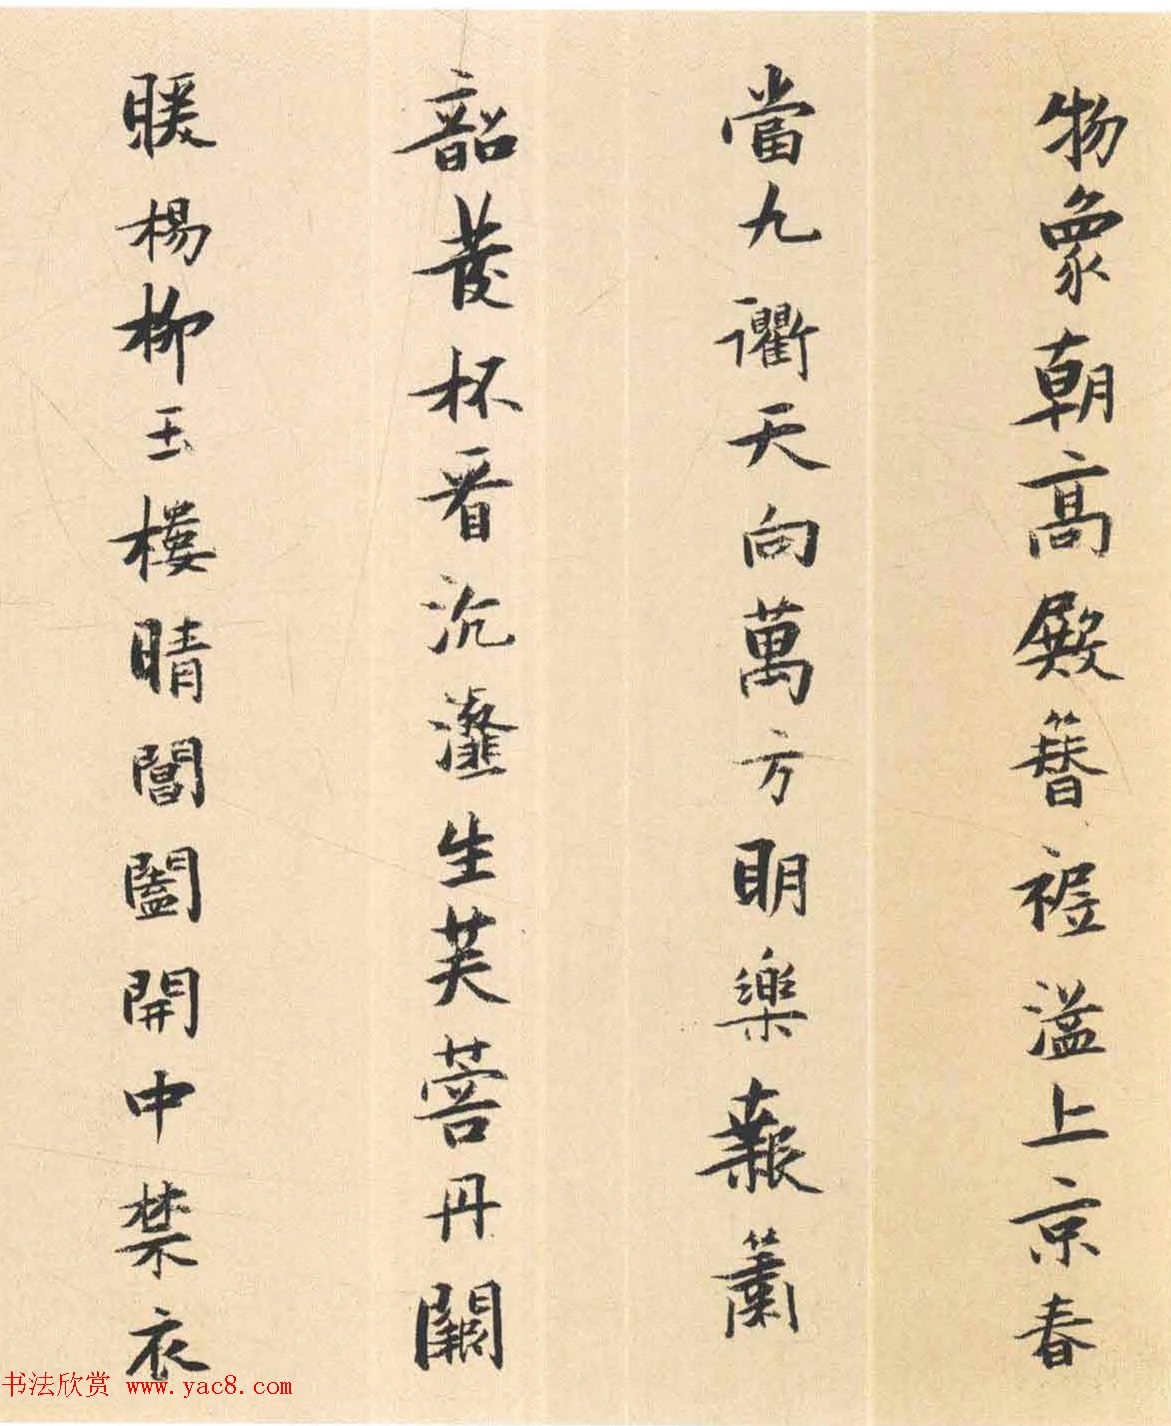 物象朝高殿簪裾溢上京春
當九衢天向萬方明樂報簫
韶發杯看沆瀣生芙蓉丹闕
暖楊柳玉樓晴閶闔開中禁衣
书法欣赏 www.yac8.com